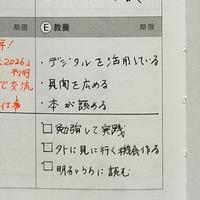 期限 E 教養 期限
・デジタルを活用している
2026」
・見聞を広める
で交流
・本が読める
仕事
□ 勉強して実践
□ 外に見に行く機会作る
□ 明るいうちに読む